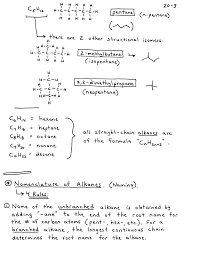 20-3
C₅H₁₂
H H H H H
H-C-C-C-C-C-H
H H H H H
pentane (n-pentane)
there are 2 other structural isomers:
2-methylbutane
(isopentane)
2,2-dimethylpropane
(neopentane)
C₆H₁₄ = hexane
C₇H₁₆ = heptane
C₈H₁₈ = octane
C₉H₂₀ = nonane
C₁₀H₂₂ = decane
all straight-chain alkanes are
of the formula "CnH2n+2"
Nomenclature of Alkanes (Naming)
4 Rules:
① Name of the unbranched alkane is obtained by
adding "-ane" to the end of the root name for
the # of carbon atoms (pent-, hex-, etc). For a
branched alkane, the longest continuous chain
determines the root name for the alkane.